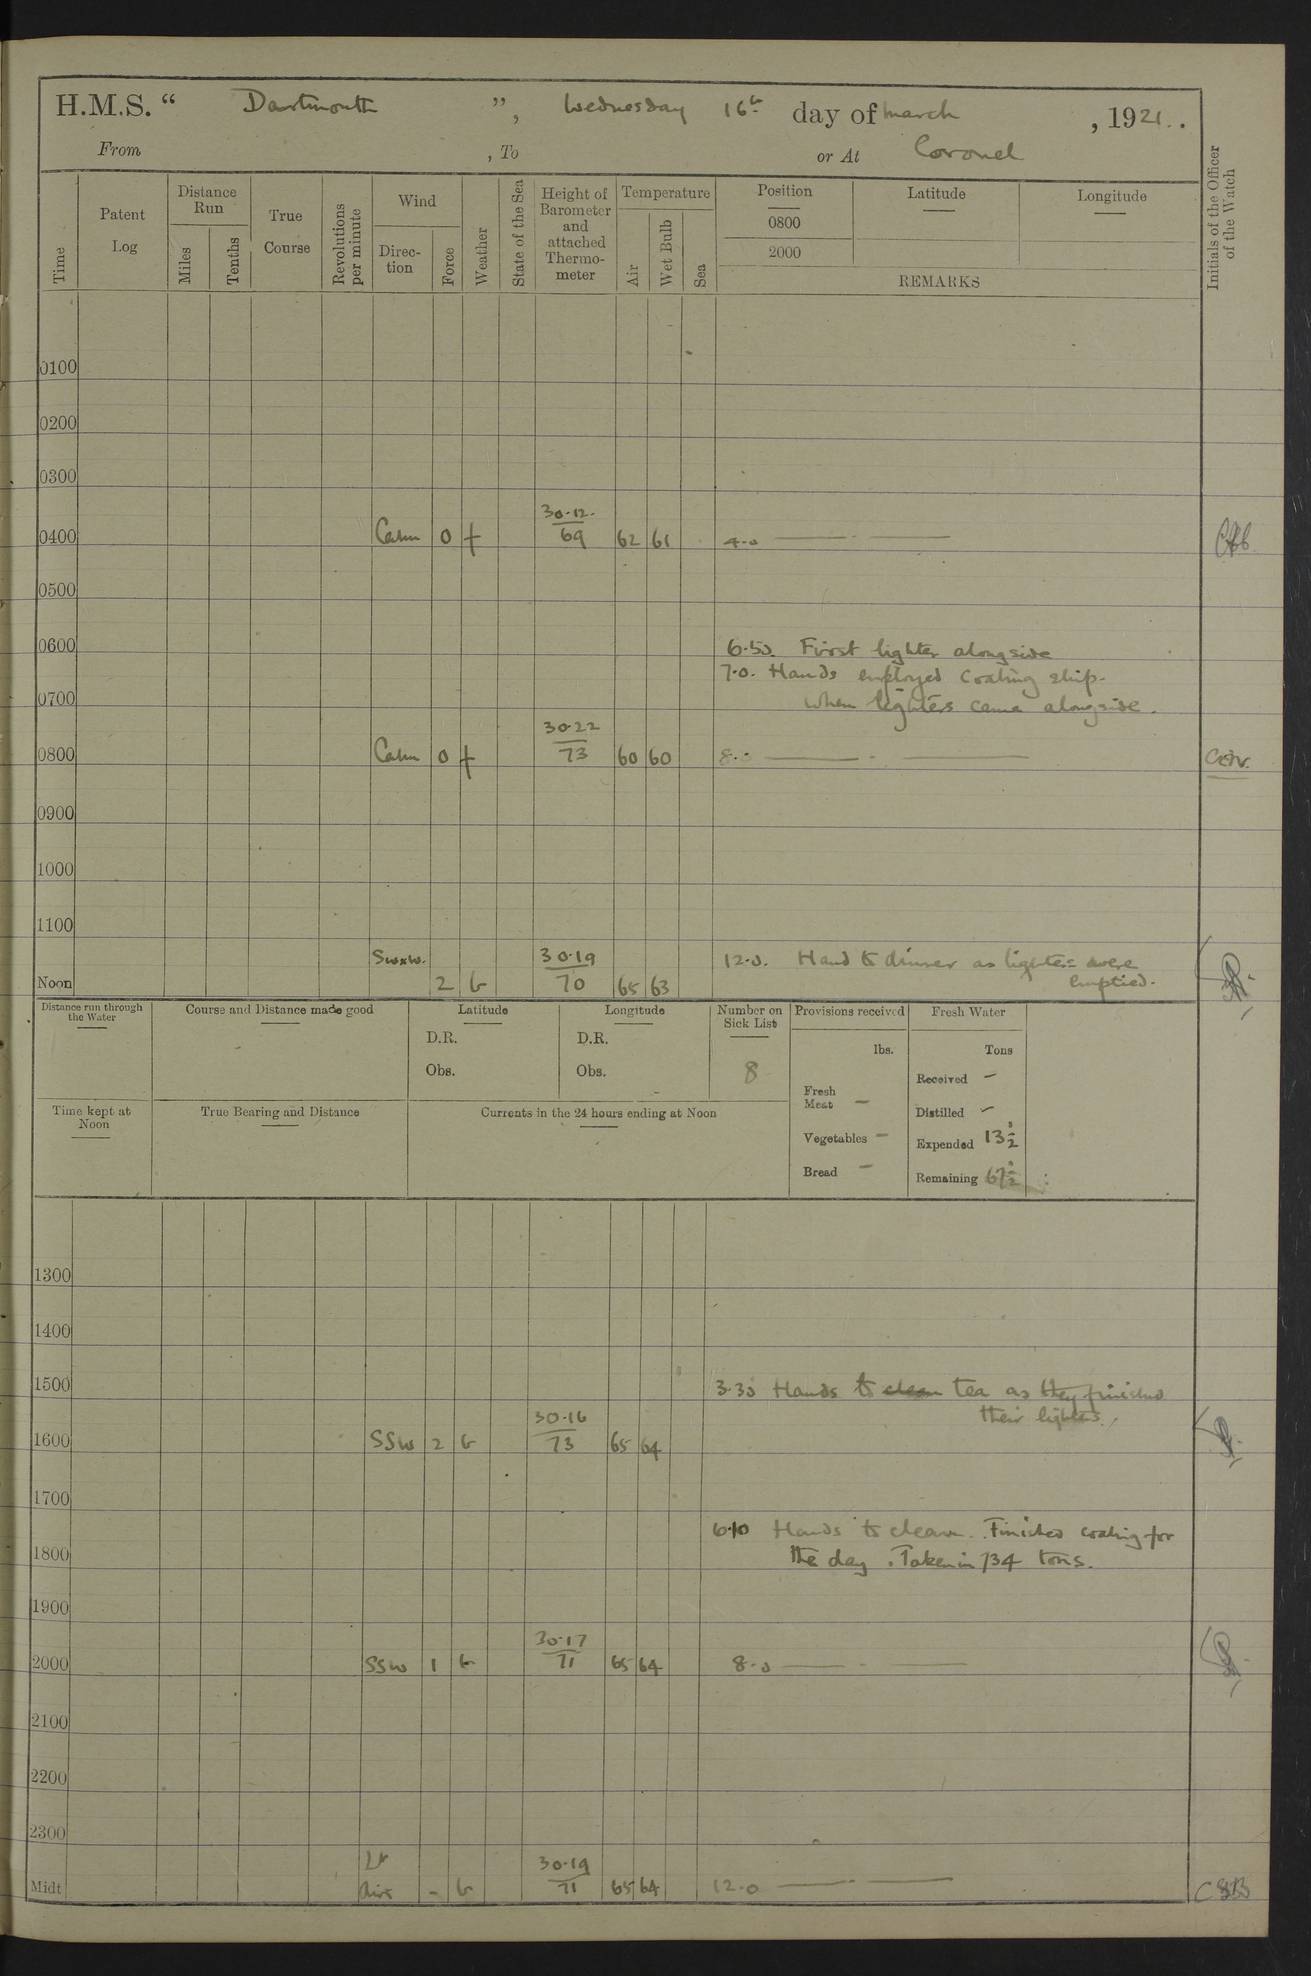 H.M.S. “ Dartmouth ”, Wednesday 16th day of March , 1921.
From , To or At Coronel
Time
Patent Log
Distance Run
Miles
Tenths
True Course
Revolutions per minute
Wind
Direction
Force
Weather
State of the Sea
Height of Barometer and attached Thermometer
Temperature
Air
Wet Bulb
Sea
Position
0800
2000
Latitude
Longitude
REMARKS
Initials of the Officer of the Watch
0100
0200
0300
30.12
0400 Calm 0 f 69 62 61 4.0 — . —
0500
0600
6.50. First lighter alongside
7.0. Hands employed coaling ship.
0700 when lighters came alongside.
30.22
0800 Calm 0 f 73 60 60 8.0 — . —
0900
1000
1100
SWxW. 30.19 12.0. Hand to dinner as lighters were
Noon 2 b 70 65 63 emptied.
Distance run through the Water
Course and Distance made good
Latitude
D.R.
Obs.
Longitude
D.R.
Obs.
Number on Sick List
8
Provisions received
lbs.
Fresh Meat —
Vegetables —
Bread —
Fresh Water
Tons
Received —
Distilled —
Expended 13½
Remaining 67½
Time kept at Noon
True Bearing and Distance
Currents in the 24 hours ending at Noon
1300
1400
1500 3.30 Hands to clean tea as they finished
30.16 their lighters.
1600 SSW 2 b 73 65 64
1700
6.10 Hands to clean. Finished coaling for
1800 the day. Taken in 734 tons.
1900
30.17
2000 SSW 1 b 71 65 64 8.0 — . —
2100
2200
2300
Lt 30.19
Midt airs - b 71 65 64 12.0 — . —